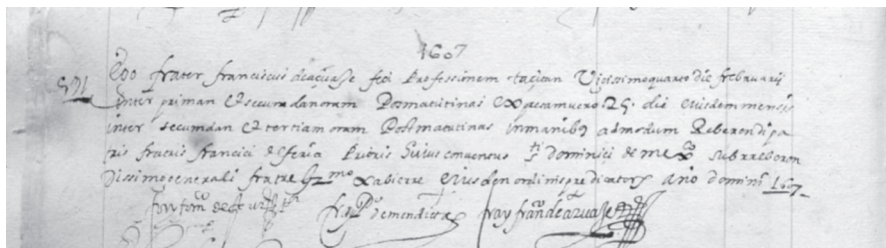 1607
571
Ego frater franciscus de açuaje feci Professionem taçitan Vigissimoquarto die frebruarij
Ynter priman et secundan oram Posmatutinas expresam vero 25. die eiusdem mensis
inter secundan et tertiam oram Posmatutinas in manibus admodum Reberendi pa
tris fratris francici de feria Prioris huius conventus sti dominici de mexco sub rreberen
dissimo generali fratre hmo xabierre eiusden ordinis predicators año domini 1607
fray franco de açuaje